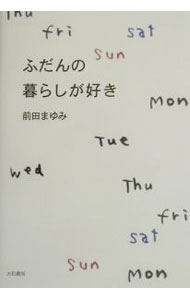 Thu
fri
sat
sun
ふだんの
暮らしが好き
Mon
前田まゆみ
Tue
wed
Thu
fri
sat
大和書房
sun
Mon